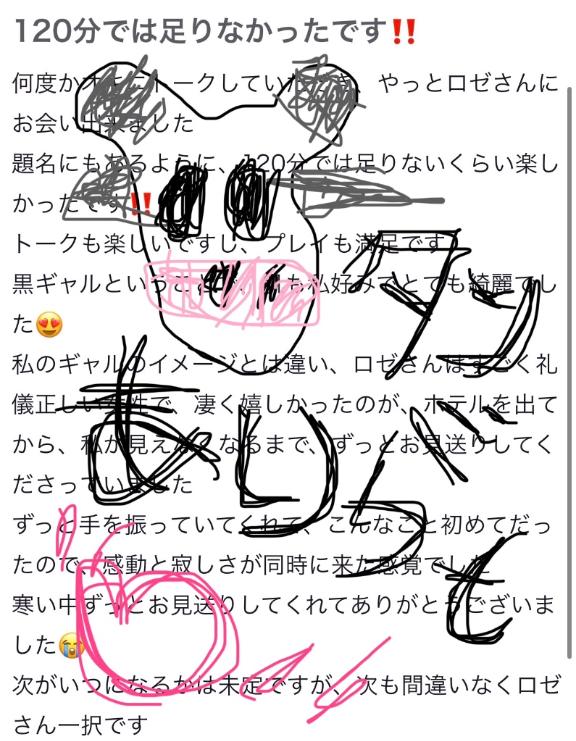 120分では足りなかったです‼️
何度か トークしていた やっとロゼさんに
お会い出来ました
題名にもあるように、120分では足りないくらい楽し
かったです‼️
トークも楽しいですし、プレイも満足です
黒ギャルという 私好みでとても綺麗でし
た😍
私のギャルのイメージとは違い、ロゼさんはすごく礼
儀正しい女性で、凄く嬉しかったのが、ホテルを出て
から、私が見えなくなるまで、ずっとお見送りしてく
ださっていました
ずっと手を振っていてくれて、こんなこと初めてだっ
たので、感動と寂しさが同時に来た感覚でした
寒い中ずっとお見送りしてくれてありがとうございま
した😭
次がいつになるかは未定ですが、次も間違いなくロゼ
さん一択です
ありがとう